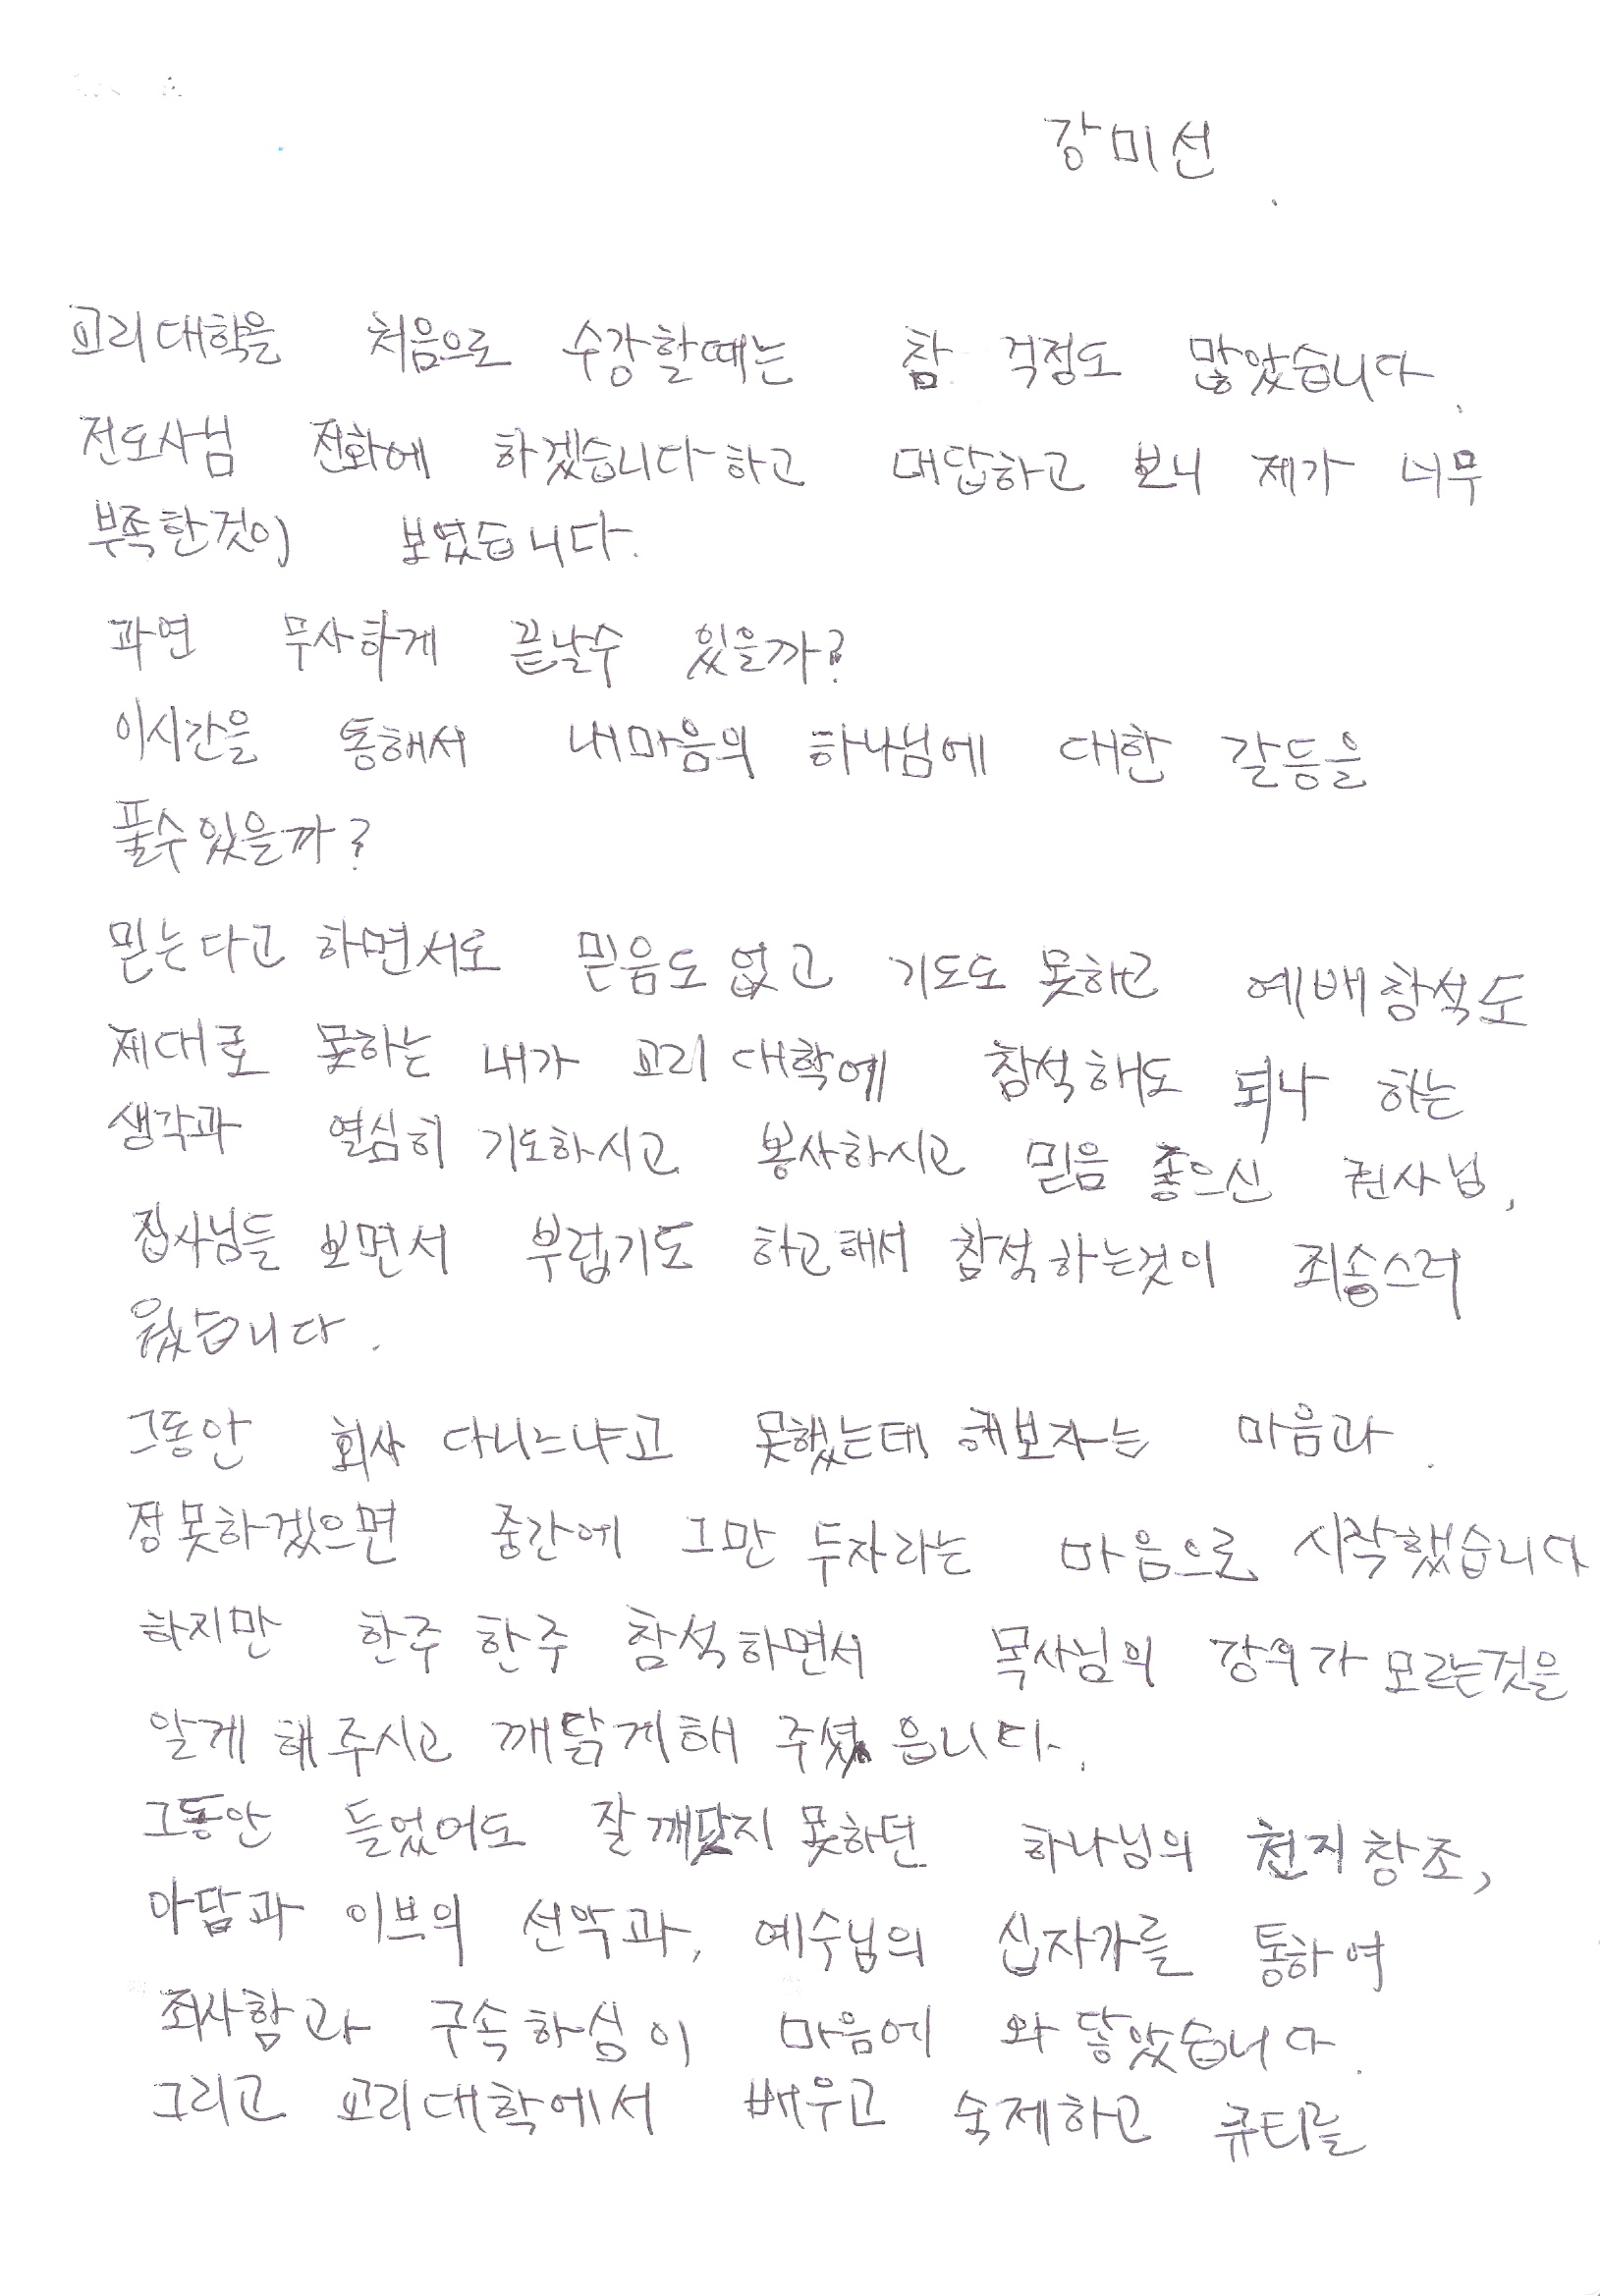 강미선
교리대학을 처음으로 수강할때는 참 걱정도 많았습니다.
전도사님 전화에 하겠습니다하고 대답하고 보니 제가 너무
부족한것이 보였습니다.
과연 무사하게 끝날수 있을까?
이시간을 통해서 내마음의 하나님에 대한 갈등을
풀수있을까?
믿는다고 하면서도 믿음도 없고 기도도 못하고 예배참석도
제대로 못하는 내가 교리대학에 참석해도 되나 하는
생각과 열심히 기도하시고 봉사하시고 믿음 좋으신 권사님,
집사님들 보면서 부럽기도 하고해서 참석하는것이 죄송스러
웠습니다.
그동안 회사 다니느냐고 못했는데 해보자는 마음과
정못하겠으면 중간에 그만 두자라는 마음으로 시작했습니다
하지만 한주 한주 참석하면서 목사님의 강의가 모르는것을
알게 해주시고 깨닭게해 주셨읍니다.
그동안 들었어도 잘깨닫지 못하던 하나님의 천지창조,
아담과 이브의 선악과, 예수님의 십자가를 통하여
죄사함과 구속하심이 마음에 와 닿았습니다.
그리고 교리대학에서 배우고 숙제하고 큐티를